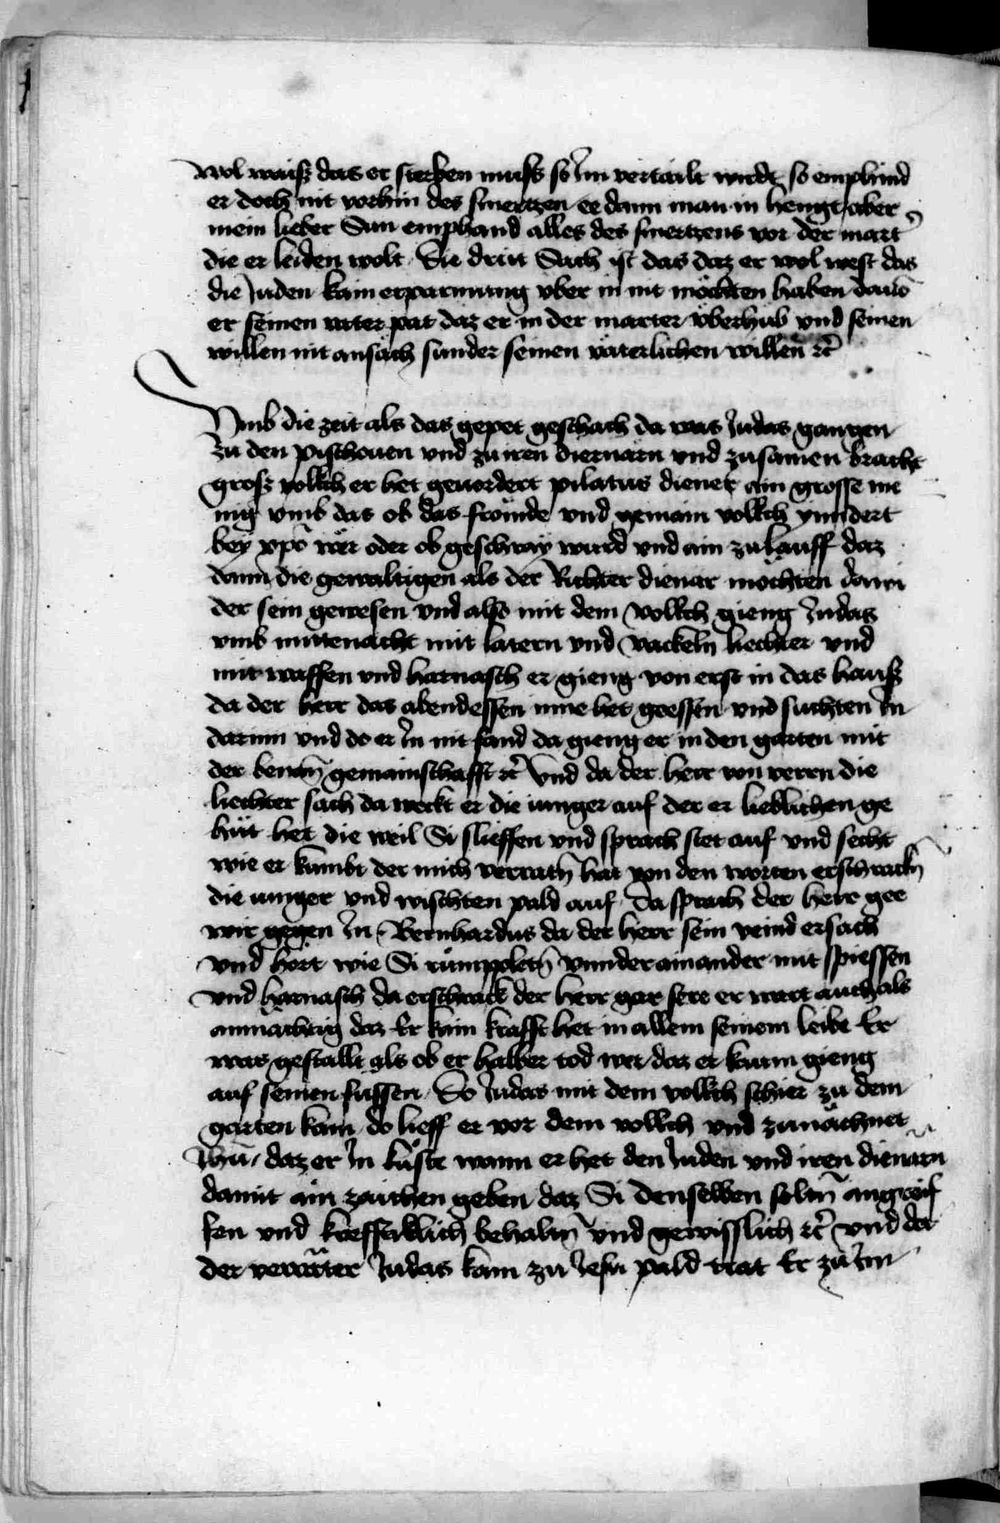 wol waiß das er sterben muſß so Im vertailt wirdt so emphind
er doch nit vorhin des smertzen ee dann man in hengt aber
mein lieber Sun emphand alles des smertzens vor der mart
die er leiden wolt Die drit Sach ist das daz er wol west das
die Juden kain erparmung vber in nit möchten haben
er seinen vater pat daz er in der marter vberhub vnd seinen
willen nit ansäch sunder seinen väterlichen willen ꝛc̄
Vmb die zeit als das gepet geschach da was Judas gangen
zu den pischouen vnd zu iren dienarn vnd zusamen bracht
groß vollkch er het geuordert pilatus diener ain grosse me
nig vmb das ob das frömde vnd gemain vollkch ynndert
bey xp̄o wër oder ob geschray wurd vnd ain zulauff daz
dann die gewaltigen als der Richter dienar mochten dawi
der sein gewesen vnd also mit dem vollkch gieng Judas
vmb mittenacht mit latern vnd vackeln liechter vnd
mit waffen vnd harnasch er gieng von erst in das hauß
da der herr das abendessen inne het geessen vnd suchten In
darinn vnd do er In nit fand da gieng er in den garten mit
der gemainschafft ꝛc̄ Vnd da der herr von verrn die
liechter sach da weckt er die iunger auf der er lieblichen ge
hüt het die weil Si slieffen vnd sprach stet auf vnd secht
wie er kumbt der mich verratñ hat von den worten erschrackñ
die iunger vnd wischten pald auf Da sprach der herr gee
wir gegen In Bernhardus da der herr sein veind ersach
vnd hort wie Si rumppletñ vnnder ainander mit spiessen
vnd harnasch da erschrack der herr gar sere er wart auch als
anmachtig daz Er kain krafft het in allem seinem leibe Er
was gestallt als ob er halber tod wer daz er kaum gieng
auf seinen füssen So Judas mit dem vollkch schier zu dem
garten kam do lieff er vor dem vollkch vnd zunachnet
Ihū daz er In küste wann er het den Juden vnd iren dienarn
damit ain zaichen geben daz Si denselben soltñ angreif
fen vnd kreffticklich behaltñ vnd gewisslich ꝛc̄ vnd da
der verräter Judas kam zu Jesu pald trat Er zu Im